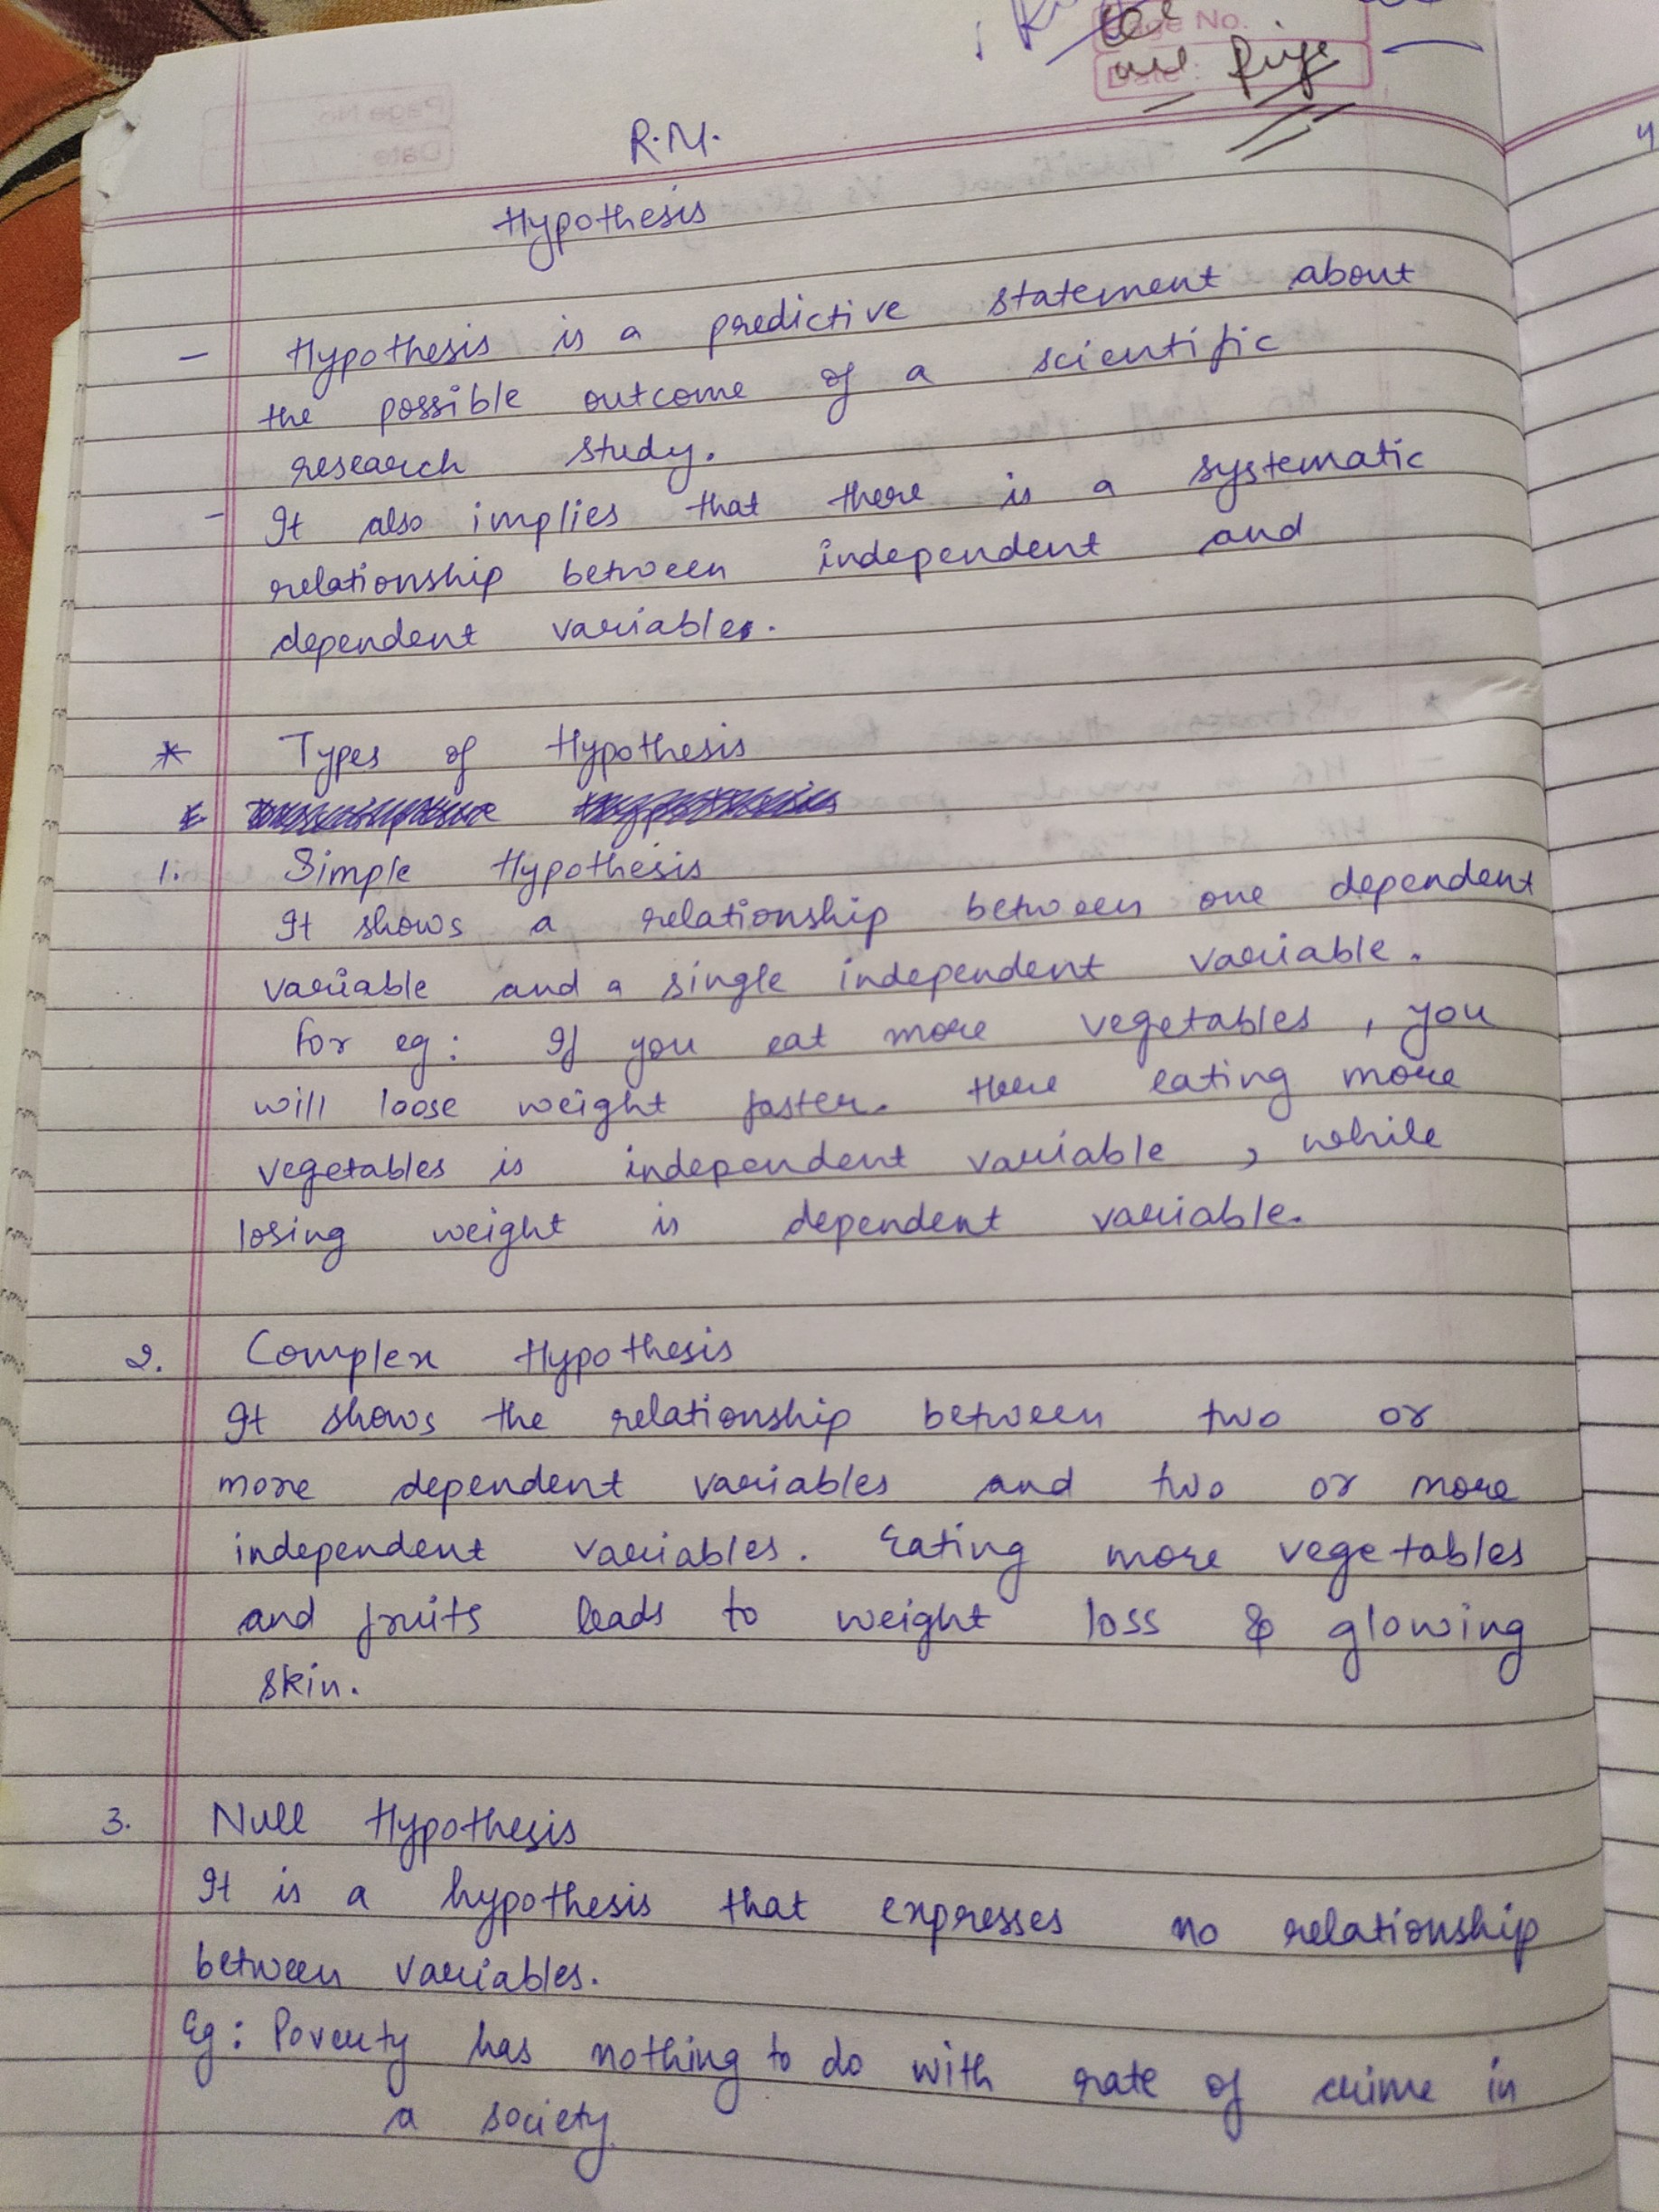 Page No.
Date:
R.M.
Hypothesis
- Hypothesis is a predictive statement about
the possible outcome of a scientific
research study.
- It also implies that there is a systematic
relationship between independent and
dependent variables.
* Types of Hypothesis
1. Simple Hypothesis
It shows a relationship between one dependent
variable and a single independent variable.
for eg: If you eat more vegetables, you
will loose weight faster. Here eating more
vegetables is independent variable, while
losing weight is dependent variable.
2. Complex Hypothesis
It shows the relationship between two or
more dependent variables and two or more
independent variables. Eating more vegetables
and fruits leads to weight loss & glowing
skin.
3. Null Hypothesis
It is a hypothesis that expresses no relationship
between variables.
Eg: Poverty has nothing to do with rate of crime in
a society